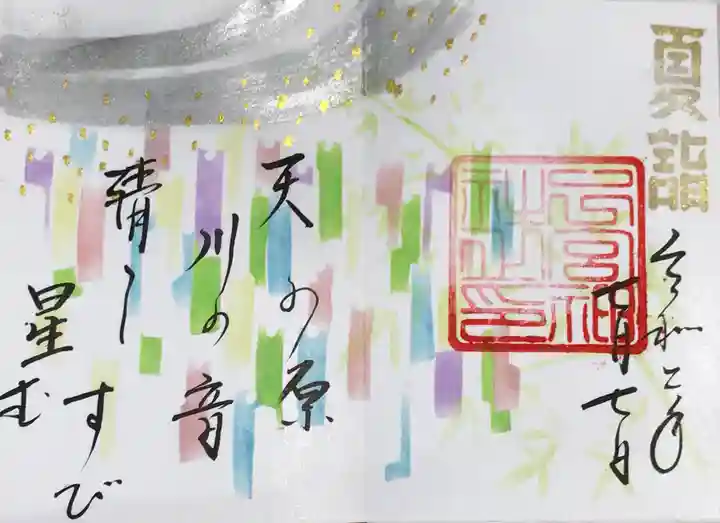 夏詣
令和二年
七月七日
天の原
川の音
清し
星むすび